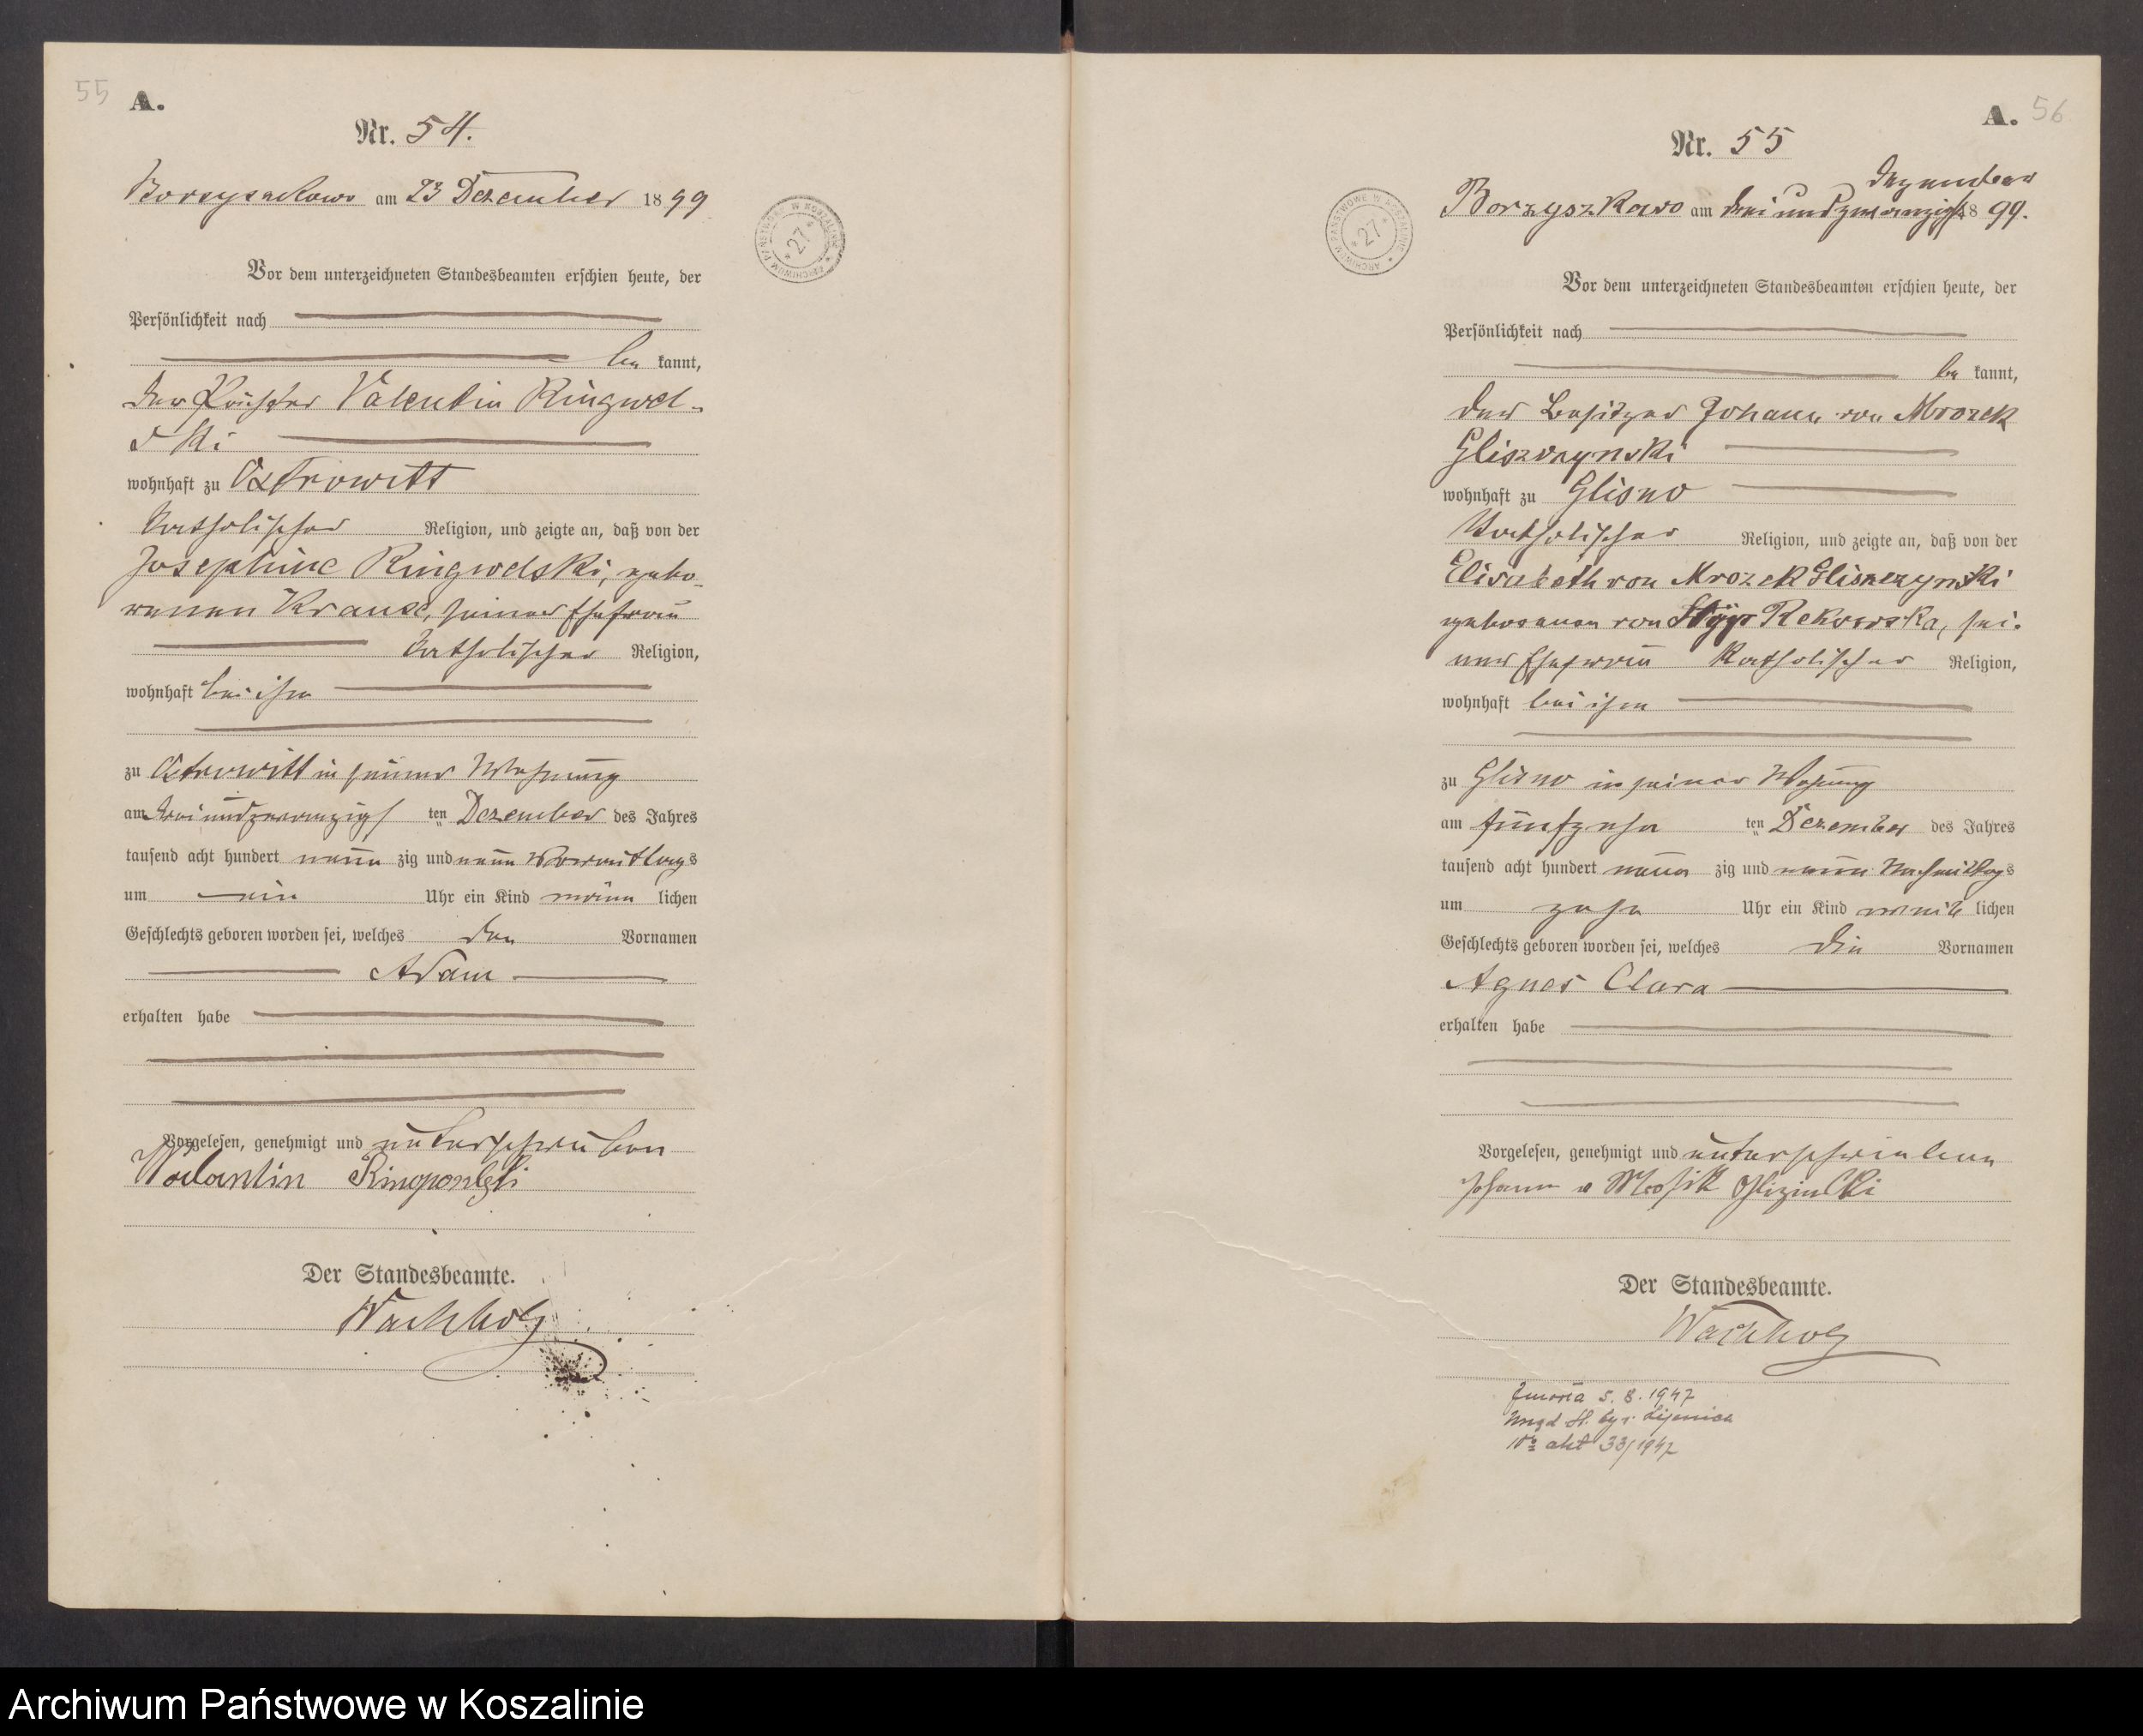 55
A.
Nr. 54.
Borzyszkowo am 23 Dezember 1899
ARCHIWUM PAŃSTWOWE W KOSZALINIE * 27 *
Vor dem unterzeichneten Standesbeamten erschien heute, der
Persönlichkeit nach
be kannt,
der Valentin Ringwel-
ski
wohnhaft zu Ostrowitt
katholischer Religion, und zeigte an, daß von der
Josephine Ringwelski, gebo-
renen Krause, seiner Ehefrau
katholischer Religion,
wohnhaft bei ihm
zu Ostrowitt in seiner Wohnung
am dreiundzwanzigs ten Dezember des Jahres
tausend acht hundert neun zig und neun Vormittags
um ein Uhr ein Kind männ lichen
Geschlechts geboren worden sei, welches den Vornamen
Adam
erhalten habe
Vorgelesen, genehmigt und unterschrieben
Valantin
Der Standesbeamte.
Wachholz
A. 56
Nr. 55
Dezember
Borzyszkowo am dreiundzwanzigst 1899.
ARCHIWUM PAŃSTWOWE W KOSZALINIE * 27 *
Vor dem unterzeichneten Standesbeamten erschien heute, der
Persönlichkeit nach
be kannt,
der Besitzer Johann von Mrozek
Gliszczynski
wohnhaft zu Glisno
katholischer Religion, und zeigte an, daß von der
Elisabeth von Mrozek Gliszczynski
geborenen von Styp Rekowska, sei-
ner Ehefrau katholischer Religion,
wohnhaft bei ihm
zu Glisno in seiner Wohnung
am fünfzehn ten Dezember des Jahres
tausend acht hundert neun zig und neun Nachmittags
um zehn Uhr ein Kind weib lichen
Geschlechts geboren worden sei, welches die Vornamen
Agnes Clara
erhalten habe
Vorgelesen, genehmigt und unterschrieben
Johann v
Der Standesbeamte.
Wachholz
Zmarła 5. 8. 1947
Urząd St. Cyw. Lipnica
No akt 33/1947
Archiwum Państwowe w Koszalinie